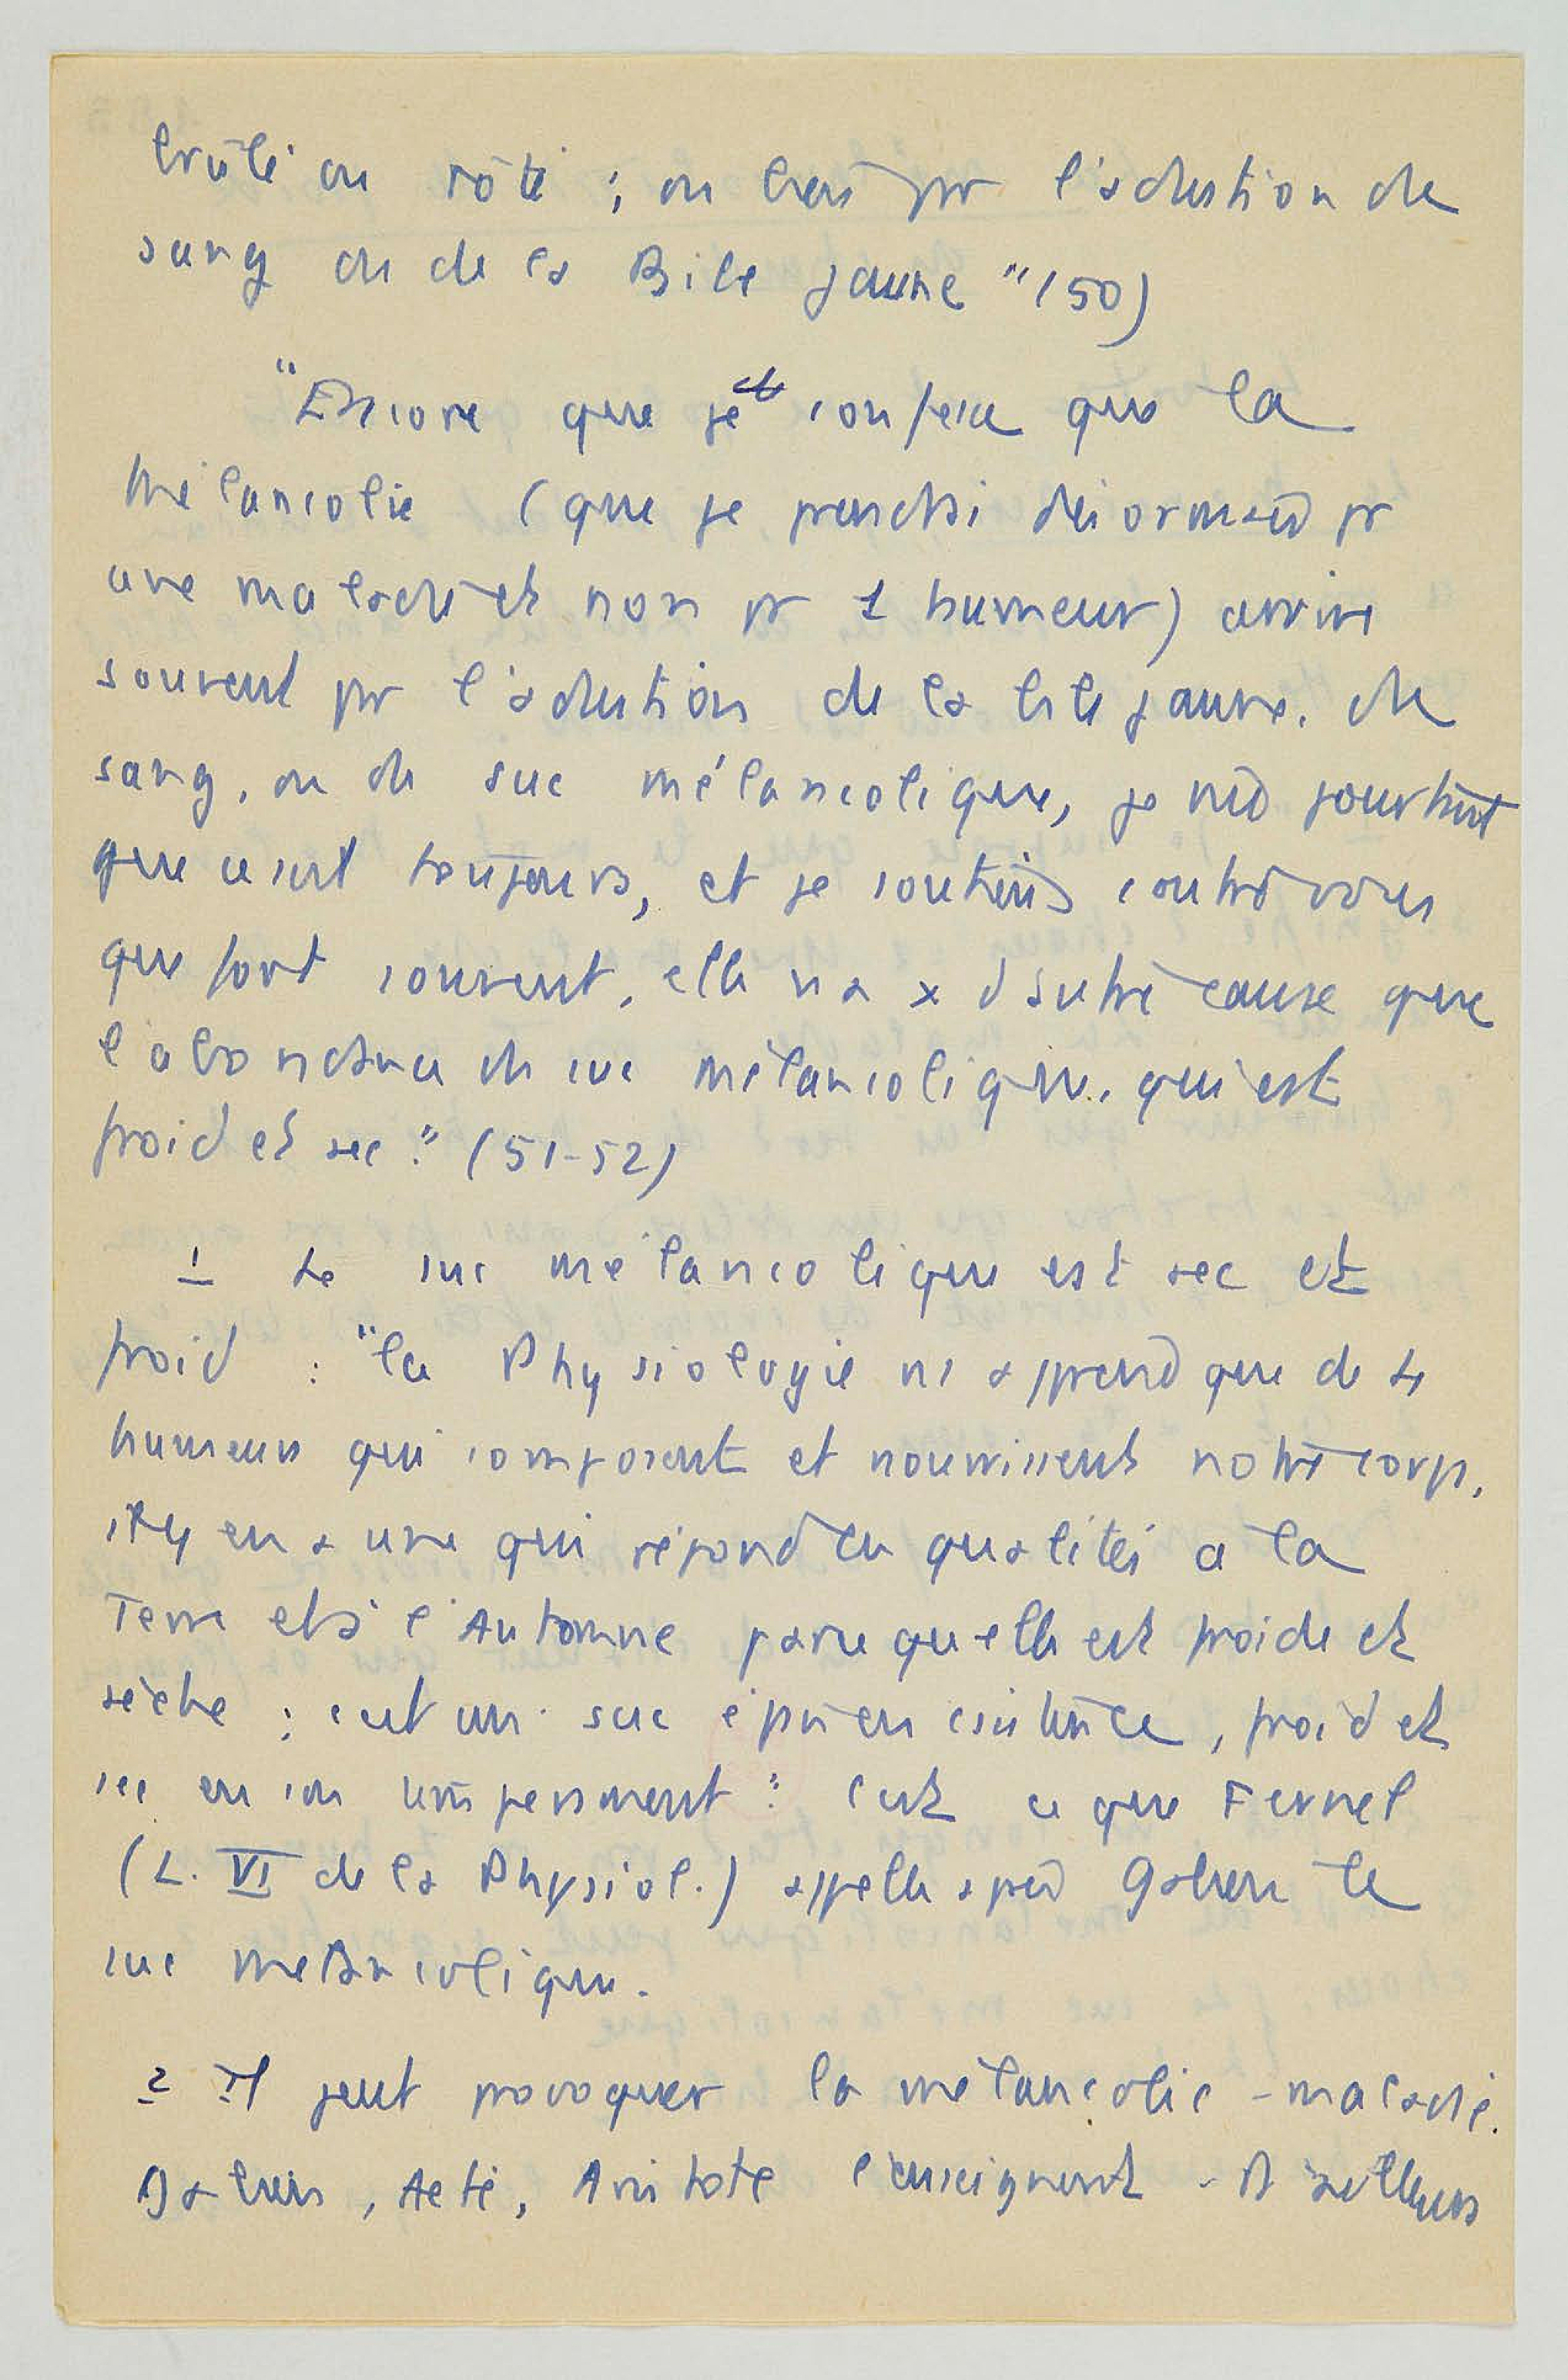 brûlé ou rôti ; ou bien pr l'adustion de
sang ou de la Bile jaune " (50)
"Encore que je confesse que la
mélancolie (que je prendrai désormais pr
une maladie et non pr 1 humeur) arrive
souvent pr l'adustion de la bile jaune, de
sang, ou de suc mélancolique, je nie pourtant
que ce soit toujours, et je soutiens contre vous
que fort souvent, elle n'a x d'autre cause que
l'abondance de suc mélancolique, qui est
froid et sec." (51-52)
1 Le suc mélancolique est sec et
froid : "la Physiologie ns apprend que de 4
humeurs qui composent et nourrissent notre corps,
il y en a une qui répond en qualités a la
Terre et à l'Automne parce qu'elle est froide et
sèche ; c'est un suc épais en consistance, froid et
sec en son tempérament". C'est ce que Fernel
(L. VI de la Physiol.) appelle après Galien le
suc mélancolique.
2 Il peut provoquer la mélancolie - maladie.
Galien, Aeté, Aristote l'enseignent - D'ailleurs